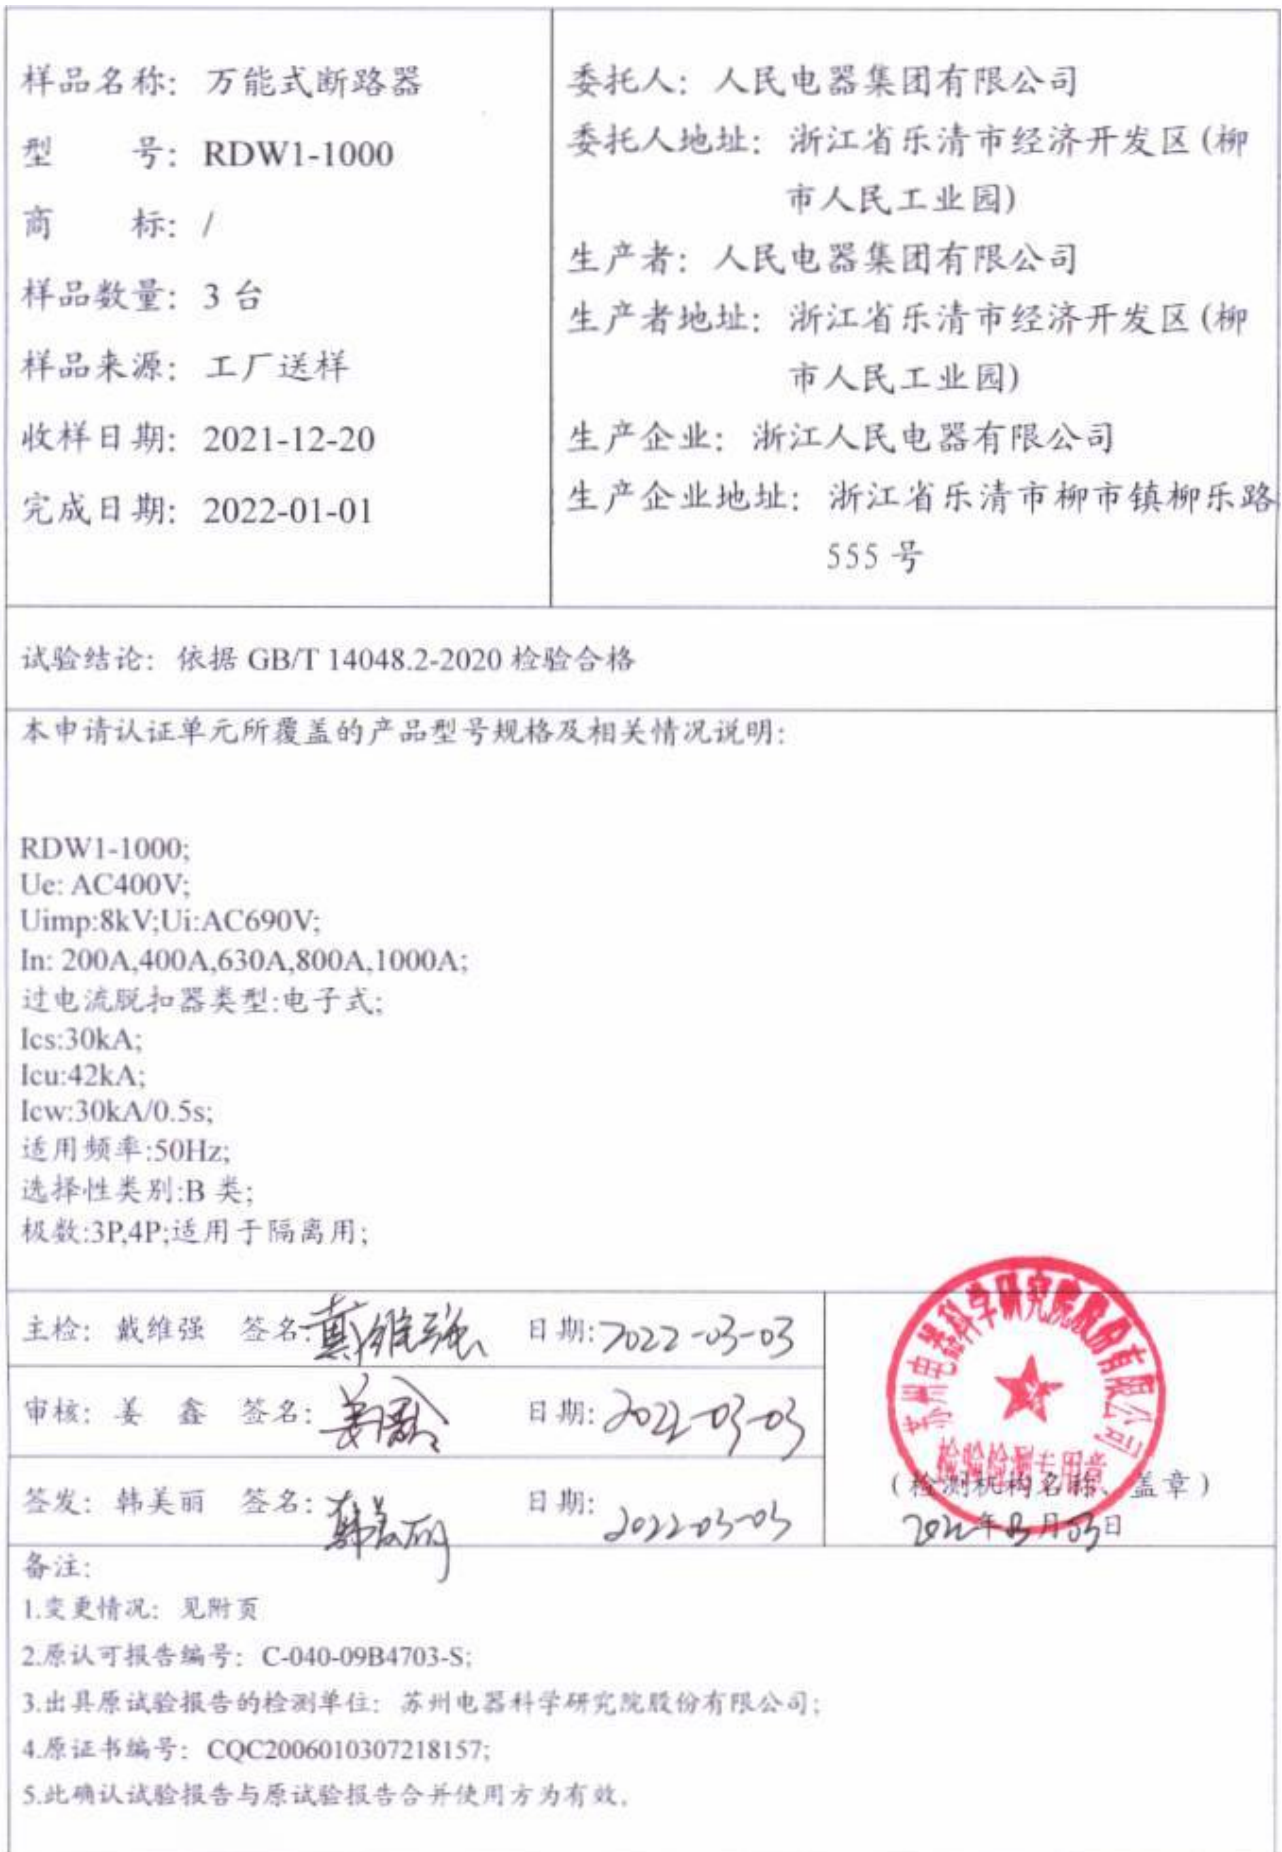 样品名称: 万能式断路器
型 号: RDW1-1000
商 标: /
样品数量: 3 台
样品来源: 工厂送样
收样日期: 2021-12-20
完成日期: 2022-01-01
委托人: 人民电器集团有限公司
委托人地址: 浙江省乐清市经济开发区(柳
市人民工业园)
生产者: 人民电器集团有限公司
生产者地址: 浙江省乐清市经济开发区(柳
市人民工业园)
生产企业: 浙江人民电器有限公司
生产企业地址: 浙江省乐清市柳市镇柳乐路
555 号
试验结论: 依据 GB/T 14048.2-2020 检验合格
本申请认证单元所覆盖的产品型号规格及相关情况说明:
RDW1-1000;
Ue: AC400V;
Uimp:8kV;Ui:AC690V;
In: 200A,400A,630A,800A,1000A;
过电流脱扣器类型:电子式;
Ics:30kA;
Icu:42kA;
Icw:30kA/0.5s;
适用频率:50Hz;
选择性类别:B 类;
极数:3P,4P;适用于隔离用;
主检: 戴维强 签名: 戴维强 日期: 2022-03-03
审核: 姜 鑫 签名: 姜鑫 日期: 2022-03-03
签发: 韩美丽 签名: 韩美丽 日期: 2022-03-03
苏州电器科学研究院股份有限公司
检验检测专用章
(检测机构名称、盖章)
2022年03月03日
备注:
1.变更情况: 见附页
2.原认可报告编号: C-040-09B4703-S;
3.出具原试验报告的检测单位: 苏州电器科学研究院股份有限公司;
4.原证书编号: CQC2006010307218157;
5.此确认试验报告与原试验报告合并使用方为有效。